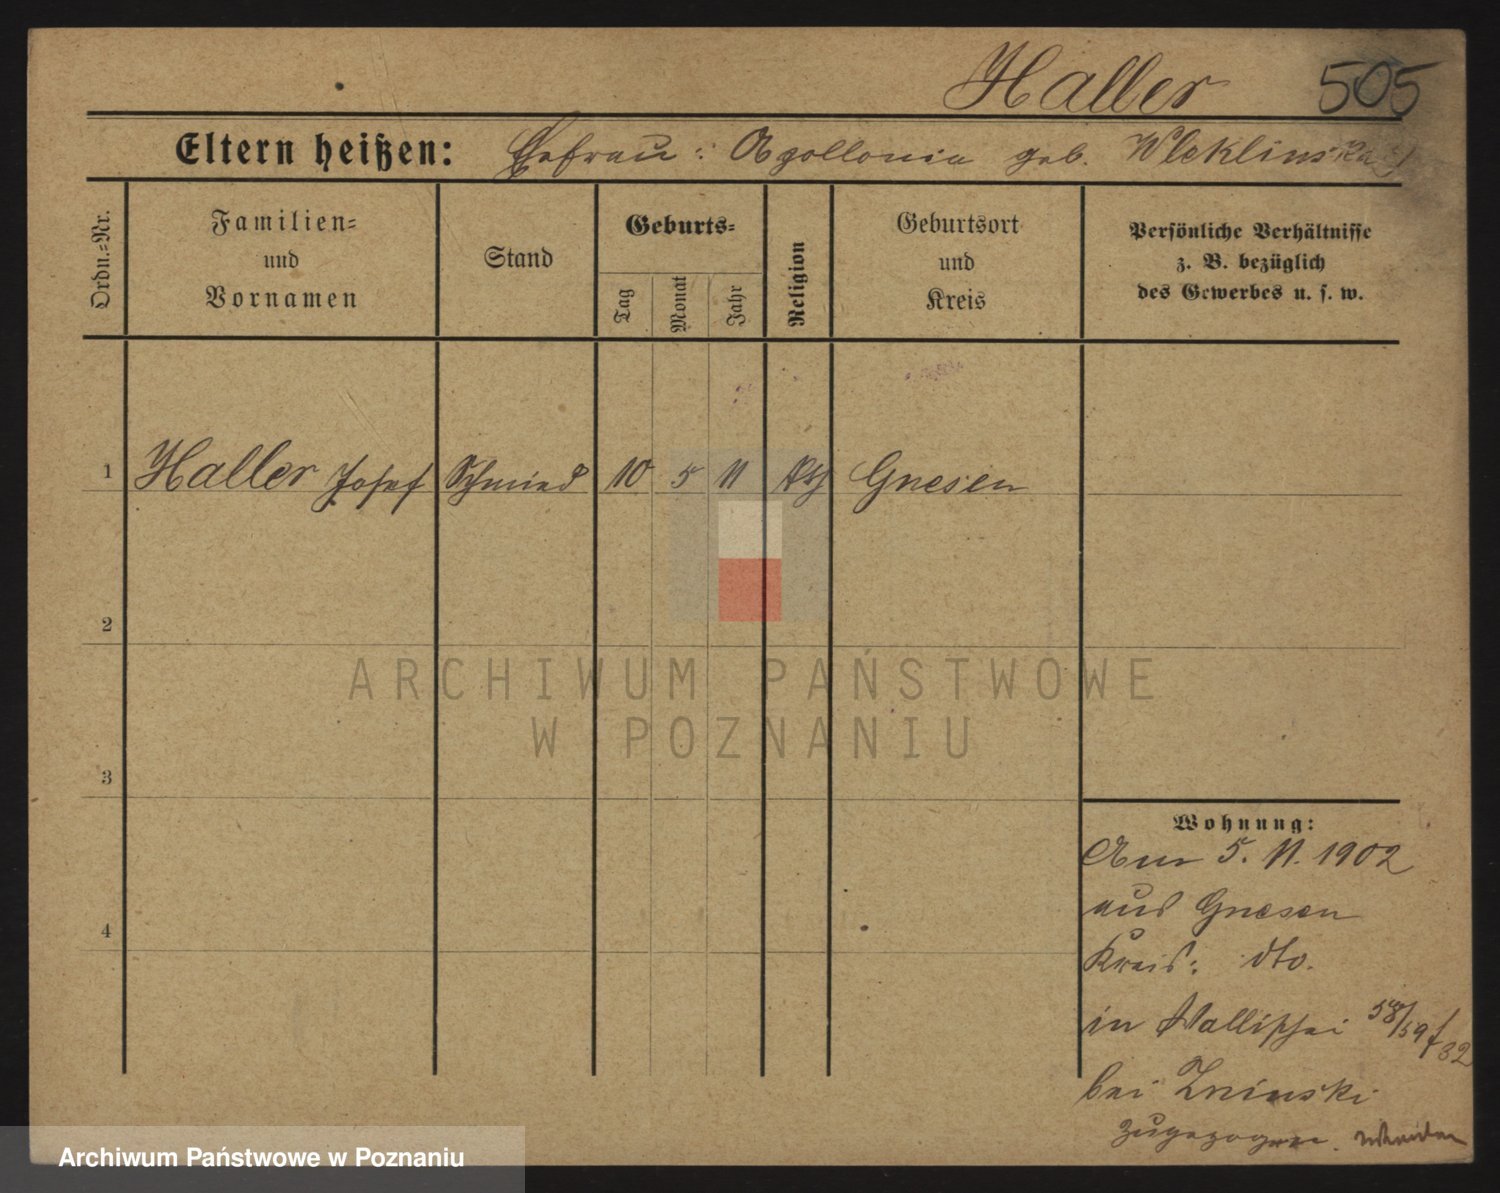 Haller 505
Eltern heißen: Ehefrau: Apollonia geb. Wleklinska
Ordn.-Nr.
Familien-
und
Vornamen
Stand
Geburts-
Tag
Monat
Jahr
Religion
Geburtsort
und
Kreis
Persönliche Verhältnisse
z. B. bezüglich
des Gewerbes u. s. w.
1 Haller Josef Schmied 10 5 71 kth Gnesen
2
3
4
ARCHIWUM PAŃSTWOWE
W POZNANIU
Wohnung:
Am 5. 11. 1902
aus Gnesen
Kreis: dto.
in Wallischei 58/59
bei Zninski
zugezogen.
Archiwum Państwowe w Poznaniu